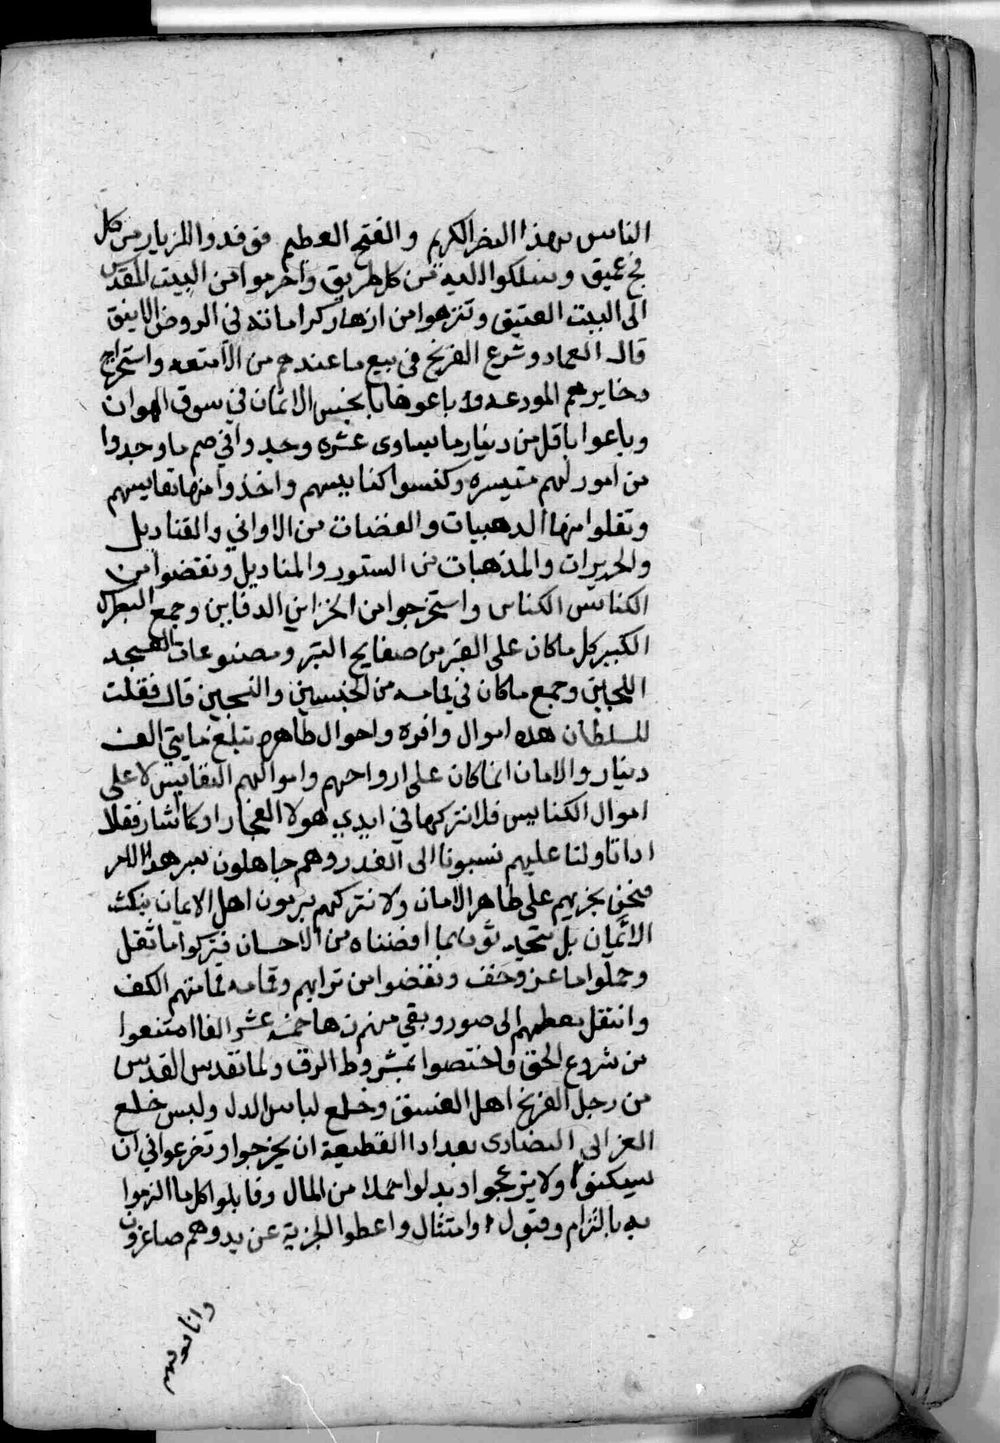 الناس بهذا النصر الكريم والفتح العظيم فوفدوا للزيارة من كل
فج عميق وسلكوا اليه من كل طريق واحرموا من البيت المقدس
الى البيت العتيق وتنزهوا من ازهار كراماته في الروض الانيق
قال العماد وشرع الفرنج في بيع ما عندهم من الامتعه واستخراج
دخايرهم المودعه وباعوها بابخس الاثمان في سوق الهوان
وباعوا باقل من دينار ما يساوى عشره وجدوا في ضم ما وجدوا
من امور لهم متيسره وكنسوا كنايسهم واخذوا منها نفايسهم
ونقلوا منها الدهبيات والفضيات من الاواني والقناديل
والحريرات والمذهبات من الستور والمناديل ونفضوا من
الكنائس الكناس واستخرجوا من الخزاين الدفاين وجمع البطرك
الكبير كل ما كان على القبر من صفايح التبر ومصنوعات العسجد
اللجين وجمع ما كان في قمامه من الجنسين والنسجين قال فقلت
للسلطان هده اموال وافره واحوال ظاهره تبلغ مايتي الف
دينار والامان انما كان على ارواحهم واموالهم النفايس لا على
اموال الكنايس فلا نتركها في ايدي هولا الفجار
اذا تاولنا عليهم نسبونا الى الغدر وهم جاهلون بسر هدا الامر
فنحن نجريهم على ظاهر الامان ولا نتركهم يرمون اهل الايمان بنكث
الائمان بل يتحدثون بما افضناه من الاحسان فتركوا ما ثقل
وحملوا ما عز وخف ونفضوا من ترابهم وقمامه قمامتهم الكف
وانتقل بعضهم الى صور وبقي منهم زها خمسه عشر الفا امتنعوا
من شروع الحق فاختصوا بمشروط الرق ولما تقدس القدس
من رجل الفرنج اهل الفسق وخلع لباس الدل ولبس خلع
العز ابى النصارى بعد ادا القطيعة ان يخرجوا وتضرعوا في ان
يسكنوا ولا يزعجوا وبدلوا جملا من المال وقابلوا كل ما الزموا
به بالتزام وقبول وامتثال واعطوا الجزية عن يد وهم صاغرون